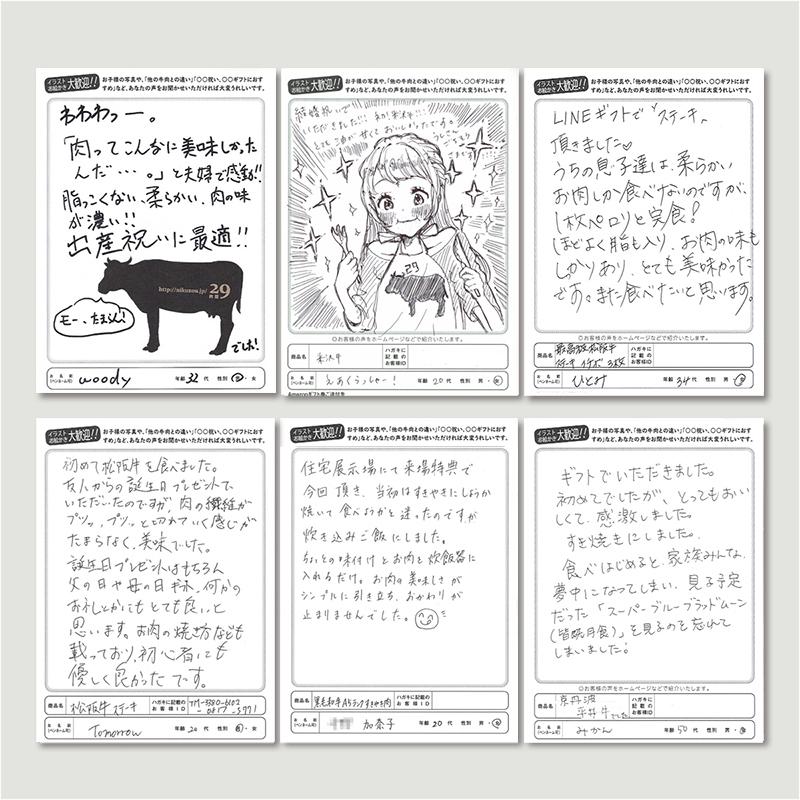 イラスト お絵かき 大歓迎!!
お子様の写真や、「他の牛肉との違い」「〇〇祝い、〇〇ギフトにおすすめ」など、あなたの声をお聞かせいただければ大変うれしいです。
わわわっー。
「肉ってこんなに美味しかった
んだ…。」と夫婦で感動!!
脂っこくない、柔らかい、肉の味
が濃い!!
出産祝いに最適!!
http://nikuzou.jp/ 29
モー、たまらん!
でした!
お名前(ペンネーム可) woody 年齢 32代 性別 男・女
イラスト お絵かき 大歓迎!!
お子様の写真や、「他の牛肉との違い」「〇〇祝い、〇〇ギフトにおすすめ」など、あなたの声をお聞かせいただければ大変うれしいです。
結婚祝いで
いただきました!!!
とても油が甘くておいしかったです。
29
◎お客様の声をホームページなどで紹介いたします。
商品名 米沢牛 ハガキに記載のお客様ID
お名前(ペンネーム可) 年齢 20代 性別 男・女
イラスト お絵かき 大歓迎!!
お子様の写真や、「他の牛肉との違い」「〇〇祝い、〇〇ギフトにおすすめ」など、あなたの声をお聞かせいただければ大変うれしいです。
LINEギフトで「ステーキ」
頂きました♡
うちの息子達は、柔らかい
お肉しか食べないのですが、
1枚ペロリと完食!
ほどよく脂も入り、お肉の味も
しっかりあり、とても美味かった
です。また食べたいと思います。
◎お客様の声をホームページなどで紹介いたします。
商品名 最高級松阪牛 ステーキ イチボ 3枚 ハガキに記載のお客様ID
お名前(ペンネーム可) ひとみ 年齢 34代 性別 男・女
イラスト お絵かき 大歓迎!!
お子様の写真や、「他の牛肉との違い」「〇〇祝い、〇〇ギフトにおすすめ」など、あなたの声をお聞かせいただければ大変うれしいです。
初めて松阪牛を食べました。
友人からの誕生日プレゼントで
いただいたのですが、肉の繊維が
プツッ、プツッと切れていく感じが
たまらなく、美味でした。
誕生日プレゼントはもちろん
父の日や母の日ギフト、何かの
お礼とかにもとても良いと
思います。お肉の焼き方なども
載っており、初心者にも
優しく良かったです。
商品名 松阪牛ステーキ ハガキに記載のお客様ID
お名前(ペンネーム可) Tomorrow 年齢 20代 性別 男・女
イラスト お絵かき 大歓迎!!
お子様の写真や、「他の牛肉との違い」「〇〇祝い、〇〇ギフトにおすすめ」など、あなたの声をお聞かせいただければ大変うれしいです。
住宅展示場にて来場特典で
今回頂き、当初はすきやきにしようか
焼いて食べようかと迷ったのですが
炊き込みご飯にしました。
ちょっとの味付けとお肉を炊飯器に
入れるだけ。お肉の美味しさが
シンプルに引き立ち、おかわりが
止まりませんでした。
商品名 黒毛和牛A5ランクすきやき肉 ハガキに記載のお客様ID
お名前(ペンネーム可) 加奈子 年齢 20代 性別 男・女
イラスト お絵かき 大歓迎!!
お子様の写真や、「他の牛肉との違い」「〇〇祝い、〇〇ギフトにおすすめ」など、あなたの声をお聞かせいただければ大変うれしいです。
ギフトでいただきました。
初めてでしたが、とってもおいし
くて、感激しました。
すき焼きにしました。
食べはじめると、家族みんな、
夢中になってしまい、見る予定
だった「スーパーブルーブラッドムーン
(皆既月食)」を見るのを忘れて
しまいました!
◎お客様の声をホームページなどで紹介いたします。
商品名 京丹波平井牛でした ハガキに記載のお客様ID
お名前(ペンネーム可) みかん 年齢 50代 性別 男・女